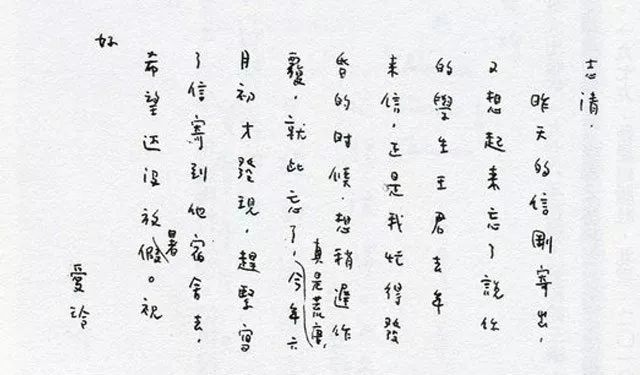 志清，
昨天的信剛寄出，
又想起来忘了說你
的學生王君去年
来信，正是我忙得發
昏的时候，想稍遲作
覆，就此忘了，真是荒唐，今年六
月初才發現，趕緊寫
了信寄到他宿舍去，
希望还没放暑假。祝
好
愛玲